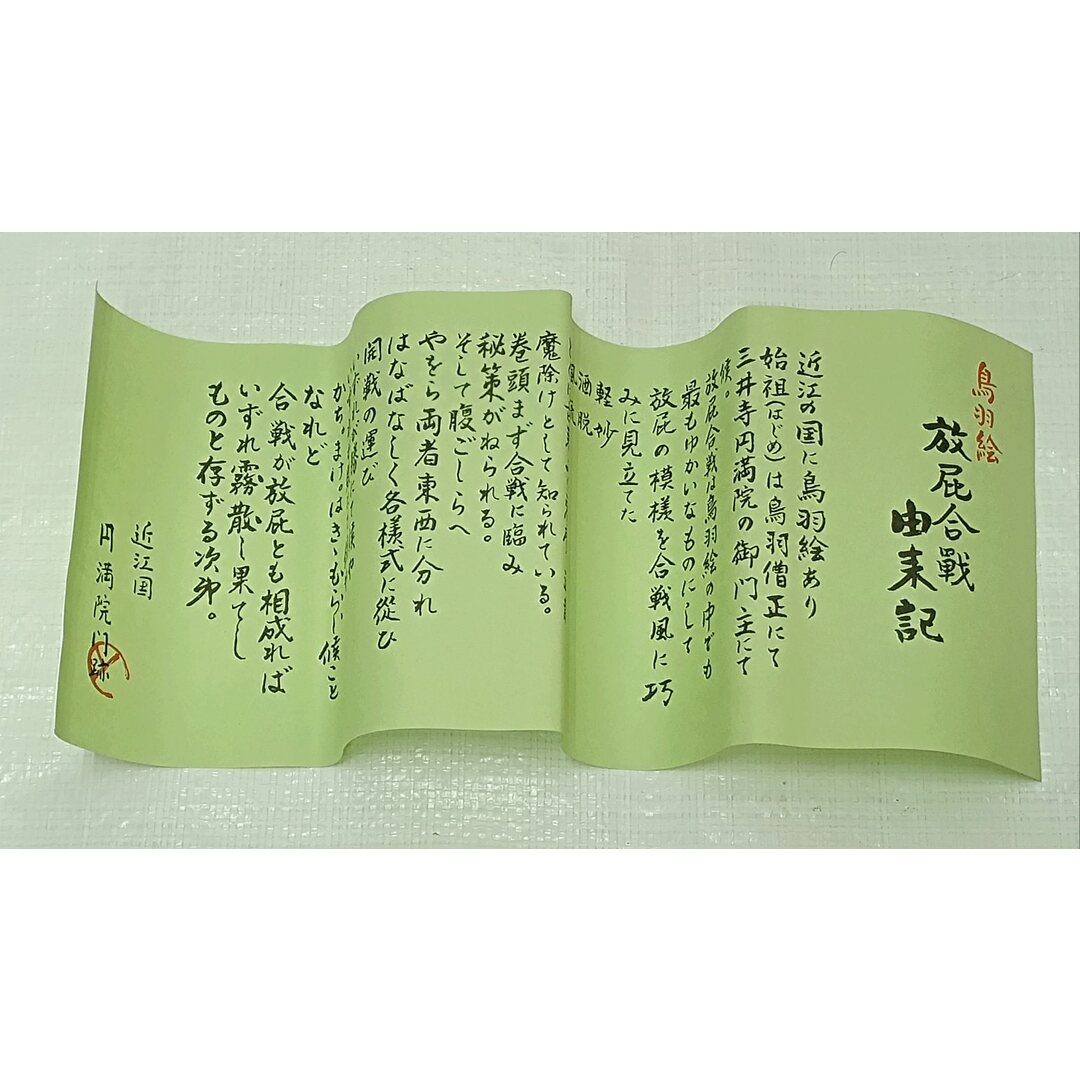 鳥羽絵
放屁合戦
由来記
近江の国に鳥羽絵あり
始祖(はじめ)は鳥羽僧正にて
三井寺円満院の御門主にて
候。
放屁合戦は鳥羽絵の中でも
最もゆかいなものにして
放屁の模様を合戦風に巧
みに見立てた
軽妙
洒脱
魔除けとして知られている。
巻頭まず合戦に臨み
秘策がねられる。
そして腹ごしらへ
やをら両者東西に分れ
はなばなしく各様式に從ひ
開戦の運び
かちまけはきゝもらし候こと
なれど
合戦が放屁とも相成れば
いずれ霧散し果てし
ものと存ずる次第。
近江国
円満院門跡